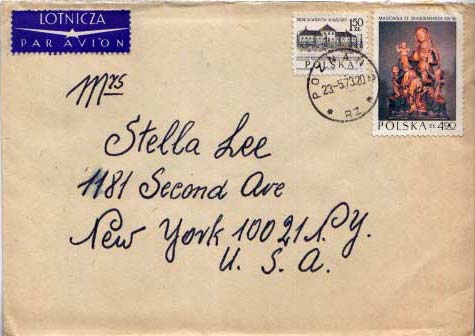 LOTNICZA
PAR AVION
1.50
ZŁ
POLSKA
MADONNA ZE
POLSKA ZŁ 4.90
POZNAŃ 2
23-5.73.20
* RZ *
Mrs
Stella Lee
1181 Second Ave
New York 10021 N.Y.
U. S. A.